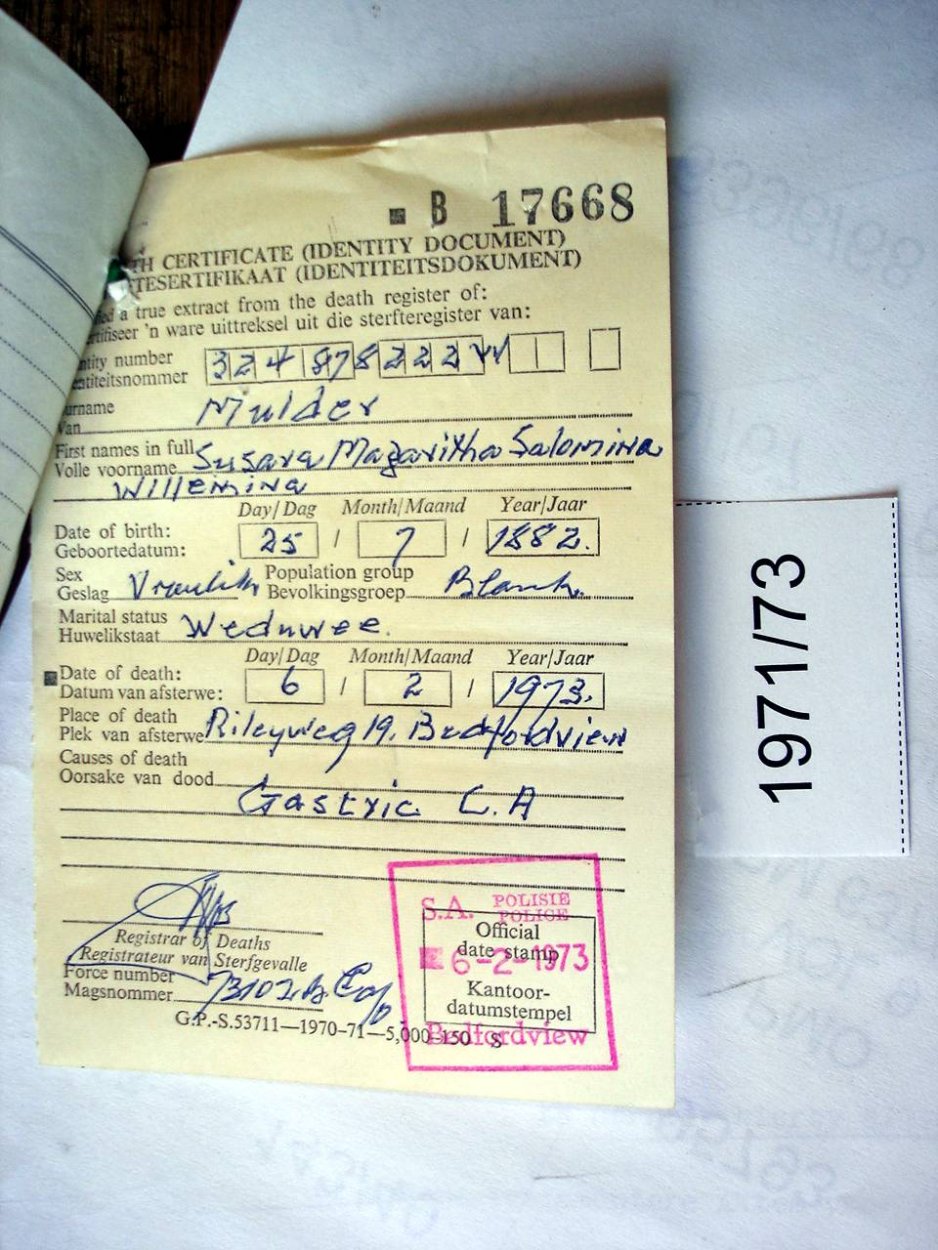 B 17668
TH CERTIFICATE (IDENTITY DOCUMENT)
TESERTIFIKAAT (IDENTITEITSDOKUMENT)
a true extract from the death register of:
rtifiseer 'n ware uittreksel uit die sterfteregister van:
ntity number
entiteitsnommer 324 878 222 W
urname
Van Mulder
First names in full
Volle voorname Susara Magaritha Salomina
Willemina
Day/Dag Month/Maand Year/Jaar
Date of birth:
Geboortedatum: 25 / 7 / 1882.
Sex Population group
Geslag Vroulik Bevolkingsgroep Blank.
Marital status
Huwelikstaat Weduwee.
Day/Dag Month/Maand Year/Jaar
Date of death:
Datum van afsterwe: 6 / 2 / 1973.
Place of death
Plek van afsterwe Rileyweg 19. Bedfordview
Causes of death
Oorsake van dood
Gastric C.A
Registrar of Deaths
Registrateur van Sterfgevalle
Force number
Magsnommer
G.P.-S.53711—1970-71—5,000-150 S
S.A. POLISIE
POLICE
Official
date stamp
6-2-1973
Kantoor-
datumstempel
Bedfordview
1971/73